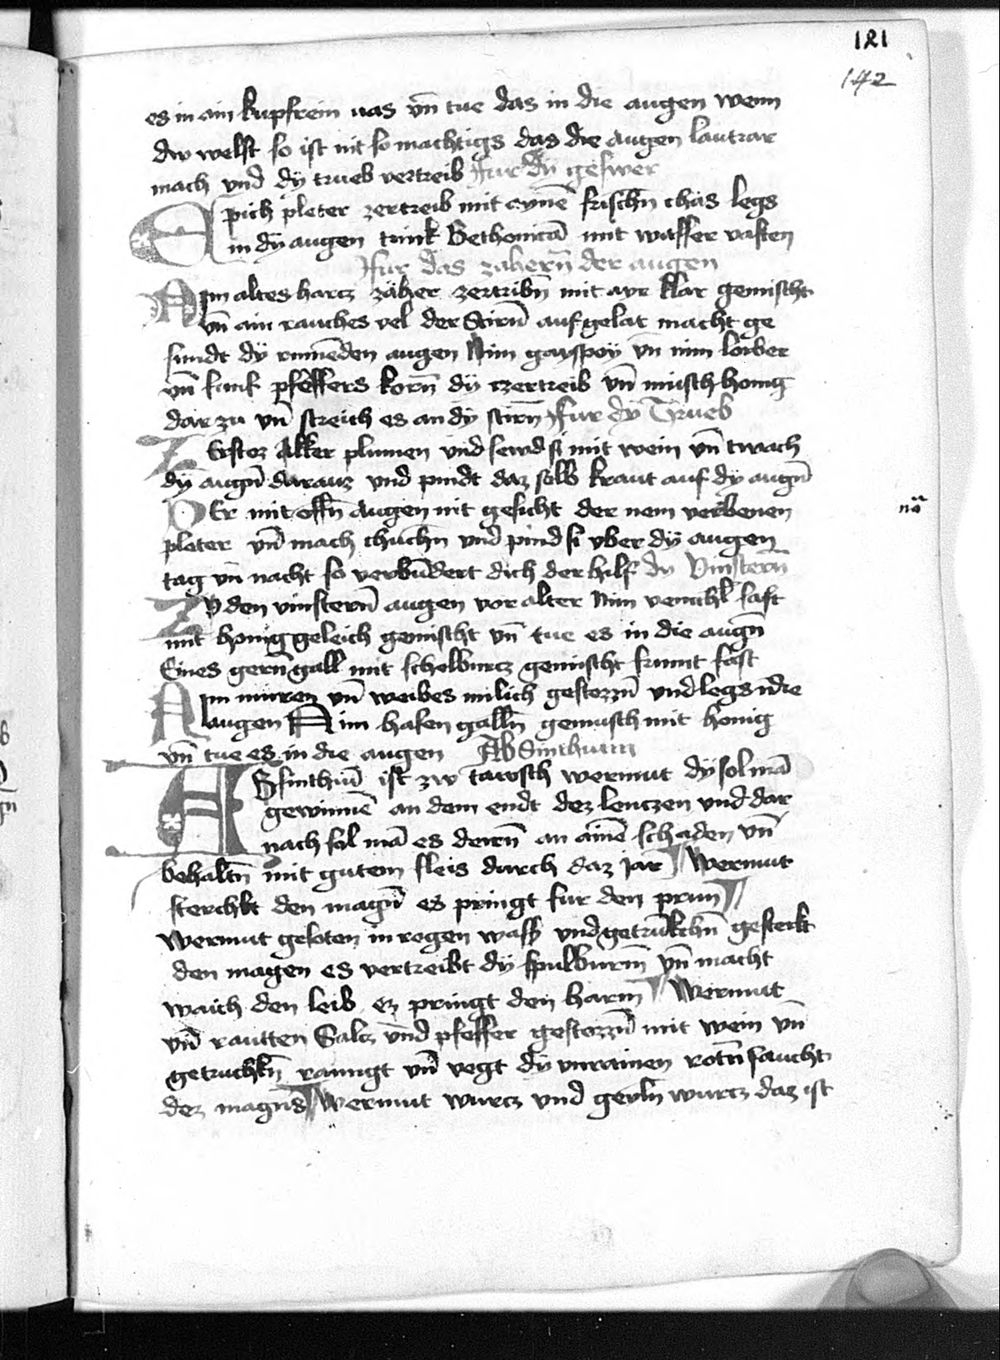 121
142
es in ain kupfrein uas vn̄ tue das in die augen wenn
dw welst so ist nit so machtigs das die augen lautrar
mach vnd dÿ trueb vertreib Fur dÿ geswer
Epich pleter zertreib mit aynē frischn̄ chäs legs
in dÿ augen trink Bethonicā mit wasser vasten
Fur das zahern̄ der augen
Nim altes harcz zäher zertribn̄ mit ayr klar gemischt
vn̄ ain rauches vel der Stirn̄ auf gelat macht ge
sundt dÿ rinnēden augen Nim vn̄ nim lorber
vn̄ funf pfeffers korn̄ dÿ czertreib vn̄ müsch honig
dar zu vn̄ streich es an dÿ stirn̄ Fur dÿ Trueb
Zstoz Akker plumen vnd sewd si mit wein vn̄ twach
dÿ augn̄ daraus vnd pindt daz selb kraut auf dÿ augn̄
Der mit offn̄ augen nit gesicht der nem verbenen
nō
pleter vn̄ mach chuchn̄ vnd pind si vber dÿ augen
tag vn̄ nacht so verbūdert dich der hilf dy Vinstern̄
Zv den vinstern̄ augen vor alter Nim venichl saft
mit honig geleich gemischt vn̄ tue es in die augn̄
Eines gern̄ gall mit schelburcz gemischt frumt fast
Nim mirren vn̄ weibes milich gestozzn̄ vnd legs in die
augen Nim hasen galln̄ gemusch mit honig
vn̄ tue es in die augen Absinthium
ABsinthiū ist zw tawsch wermut dÿ sol mā
gewinnē an dem endt dez lenczen vnd dar
nach sol mā es derrn̄ an ainē schaden vn̄
behaltn̄ mit gutem fleis durch daz Jar Wermut
sterchkt den magn̄ es pringt fur den prun
Wermut gesoten in regen wasser vnd getrūkchn̄ gesterkt
den magen es vertreibt dÿ spulburm̄ vn̄ macht
waich den leib ez pringt den harm Wermut
vn̄ rautten Salcz vnd pfeffer gestozzn̄ mit wein vn̄
getruchkn̄ rainigt vn̄ vegt dÿ vnrainen rotn̄ faucht
dez magns Wermut wurcz vnd wurcz daz ist